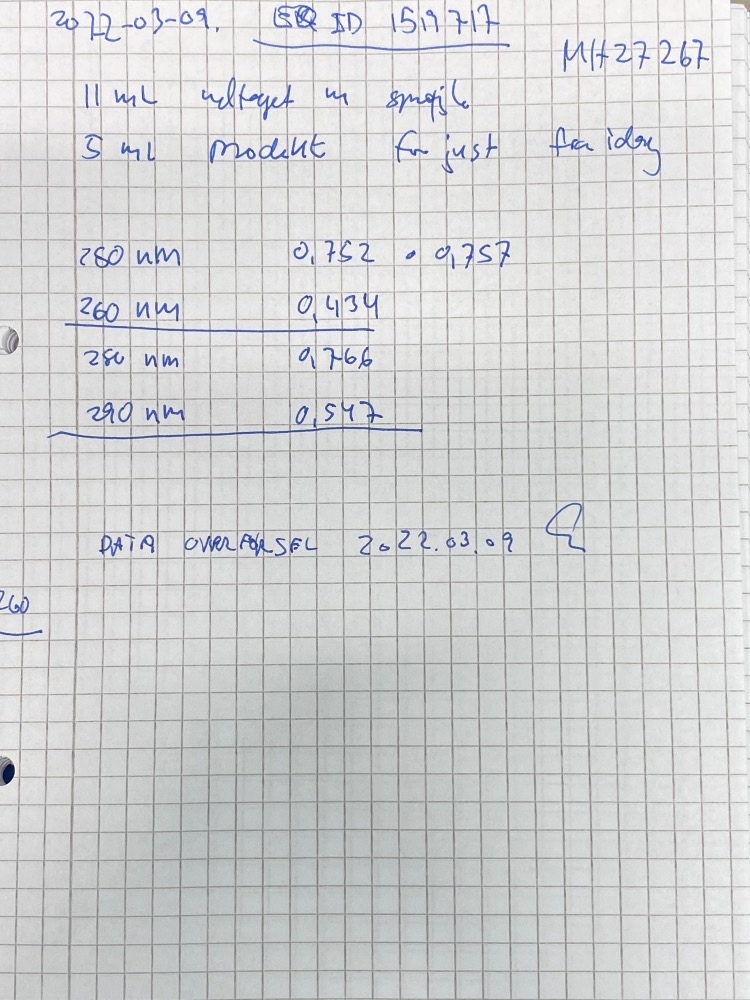 2022-03-09. ID 1519717
MH27267
11 mL udtaget
5 mL Produkt for just fra idag
280 nm 0,752 • 0,757
260 nm 0,434
280 nm 0,766
290 nm 0,547
DATA OVERFØRSEL 2022.03.09
260